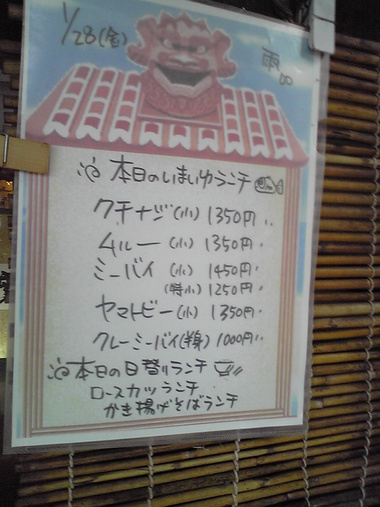 1/28(金)
雨
本日のいまいゆランチ
クチナジ(小) 1350円
ムルー(小) 1350円
ミーバイ(小) 1450円
(特小) 1250円
ヤマトビー(小) 1350円
クレーミーバイ(半身) 1000円
本日の日替りランチ
ロースカツランチ
かき揚げそばランチ